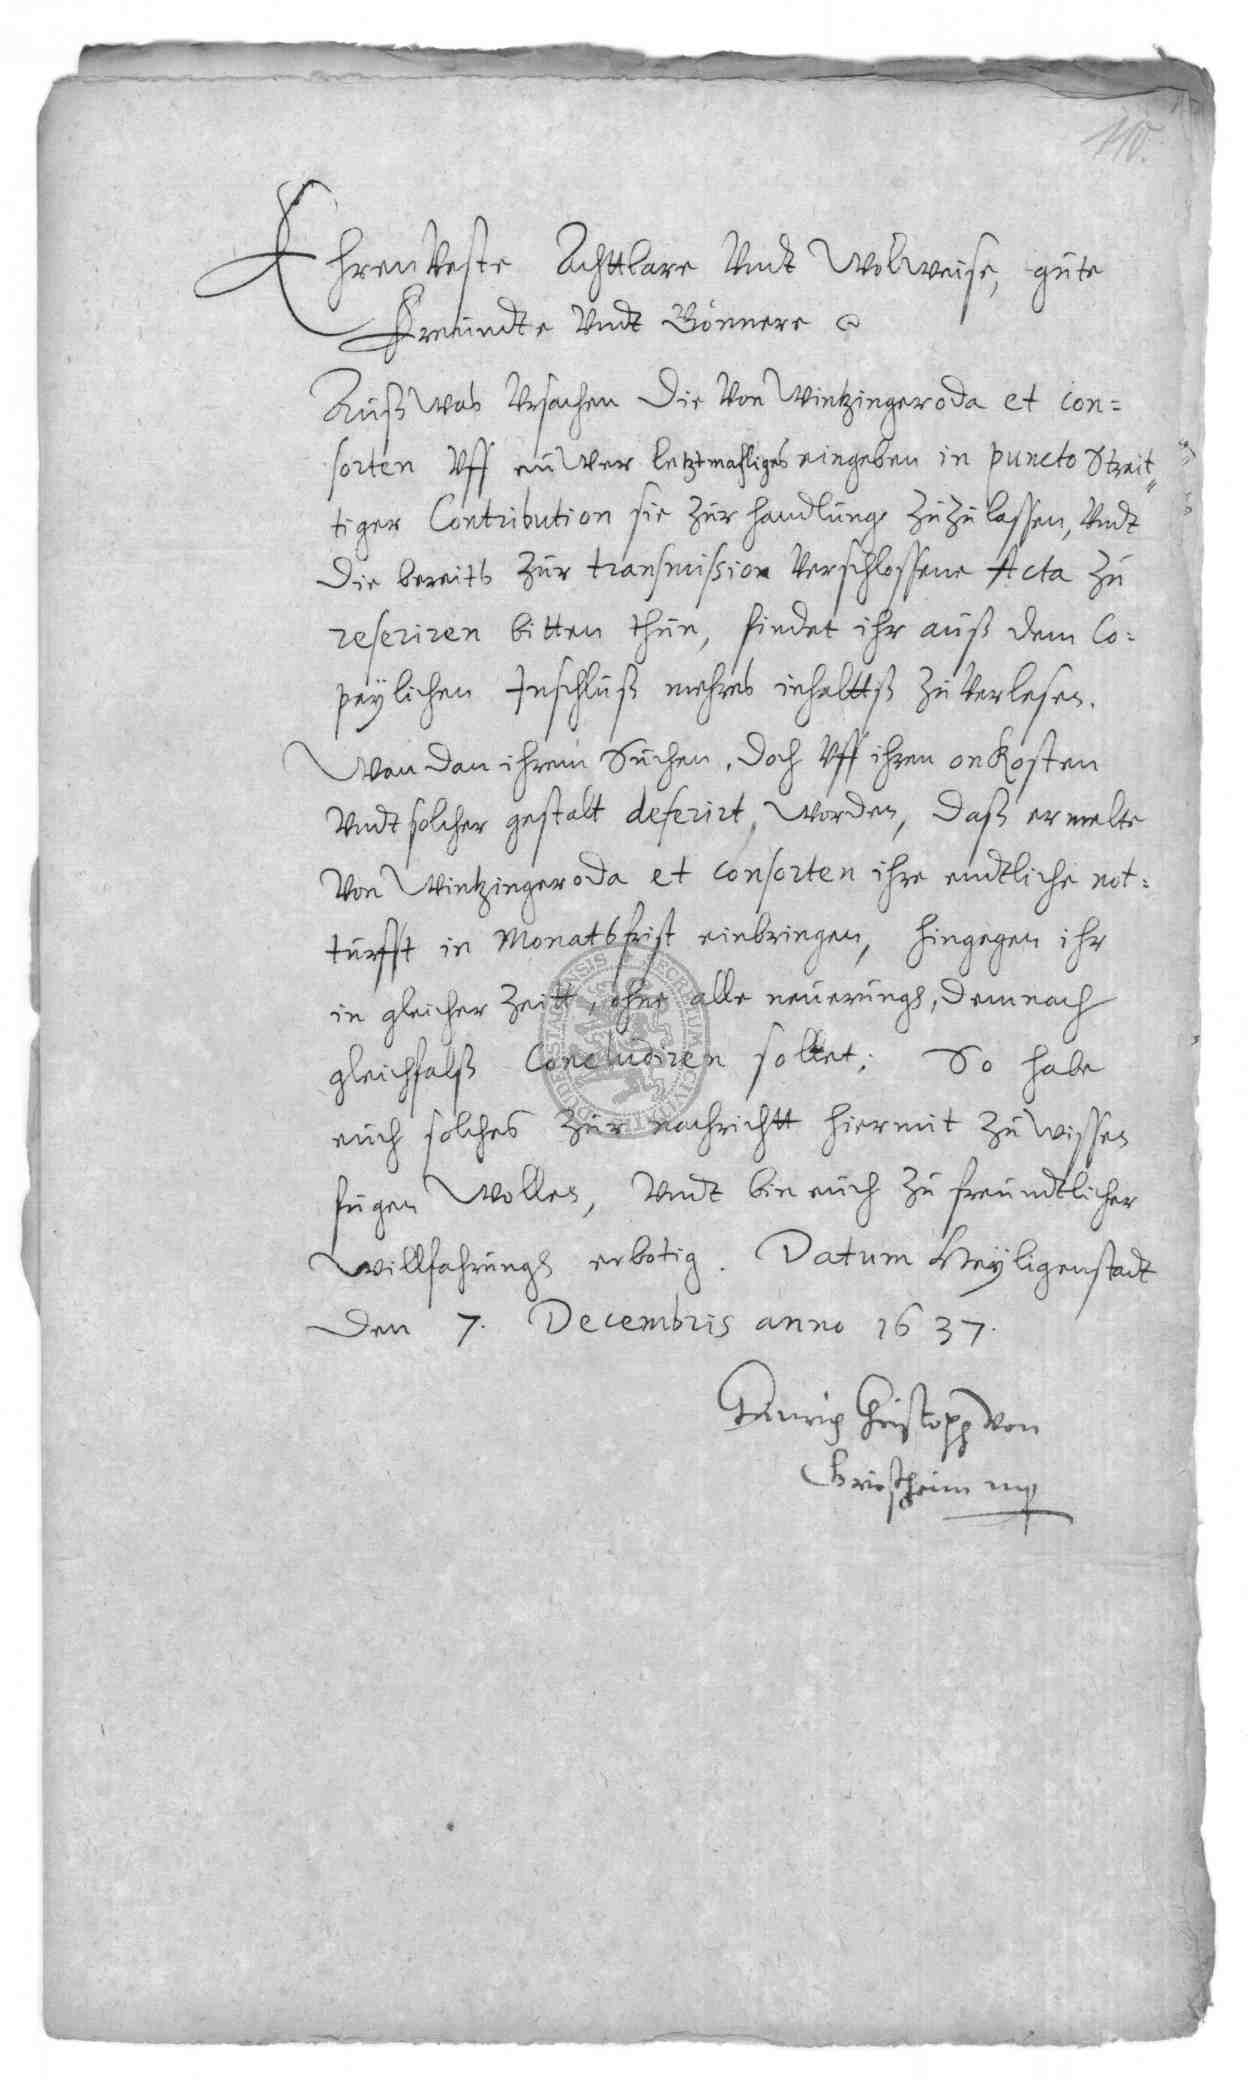 110.
EhrenVeste Achttbare Vndt Wolweise, gúte
Freúndte Vndt Gönnere
Aúß was Vrsachen die Von Wintzingeroda et con=
sorten Vff eúwer letztmahliges eingeben in puncto Streit
tiger Contribution sie zúr handlúng zúzúlassen, Vndt
die bereits zúr transmission Verschlossene Acta zú
reseriren bitten thún, findet ihr aúß dem Co=
peylichen Inschlúß mehres inhaltts zú Verlesen.
Wan dan ihrem Súchen, doch Vff ihren onKosten
Vndt solcher gestalt deferirt worden, daß ermelte
Von Wintzingeroda et consorten ihre endtliche not=
túrfft in Monatsfrist einbringen, hingegen ihr
in gleicher Zeitt, ohne alle neúerúng, demnach
gleichfalß Concludiren solltet; So habe
eúch solches zúr nachrichtt hiermit zú wissen
fúgen wollen, Vndt bin eúch zú freúndtlicher
willfahrúng erbotig. Datum Heyligenstadt
den 7. Decembris anno 1637.
Christopff Von
Griesheim mp
SECRETUM CIVITATIS DUDERSTADENSIS